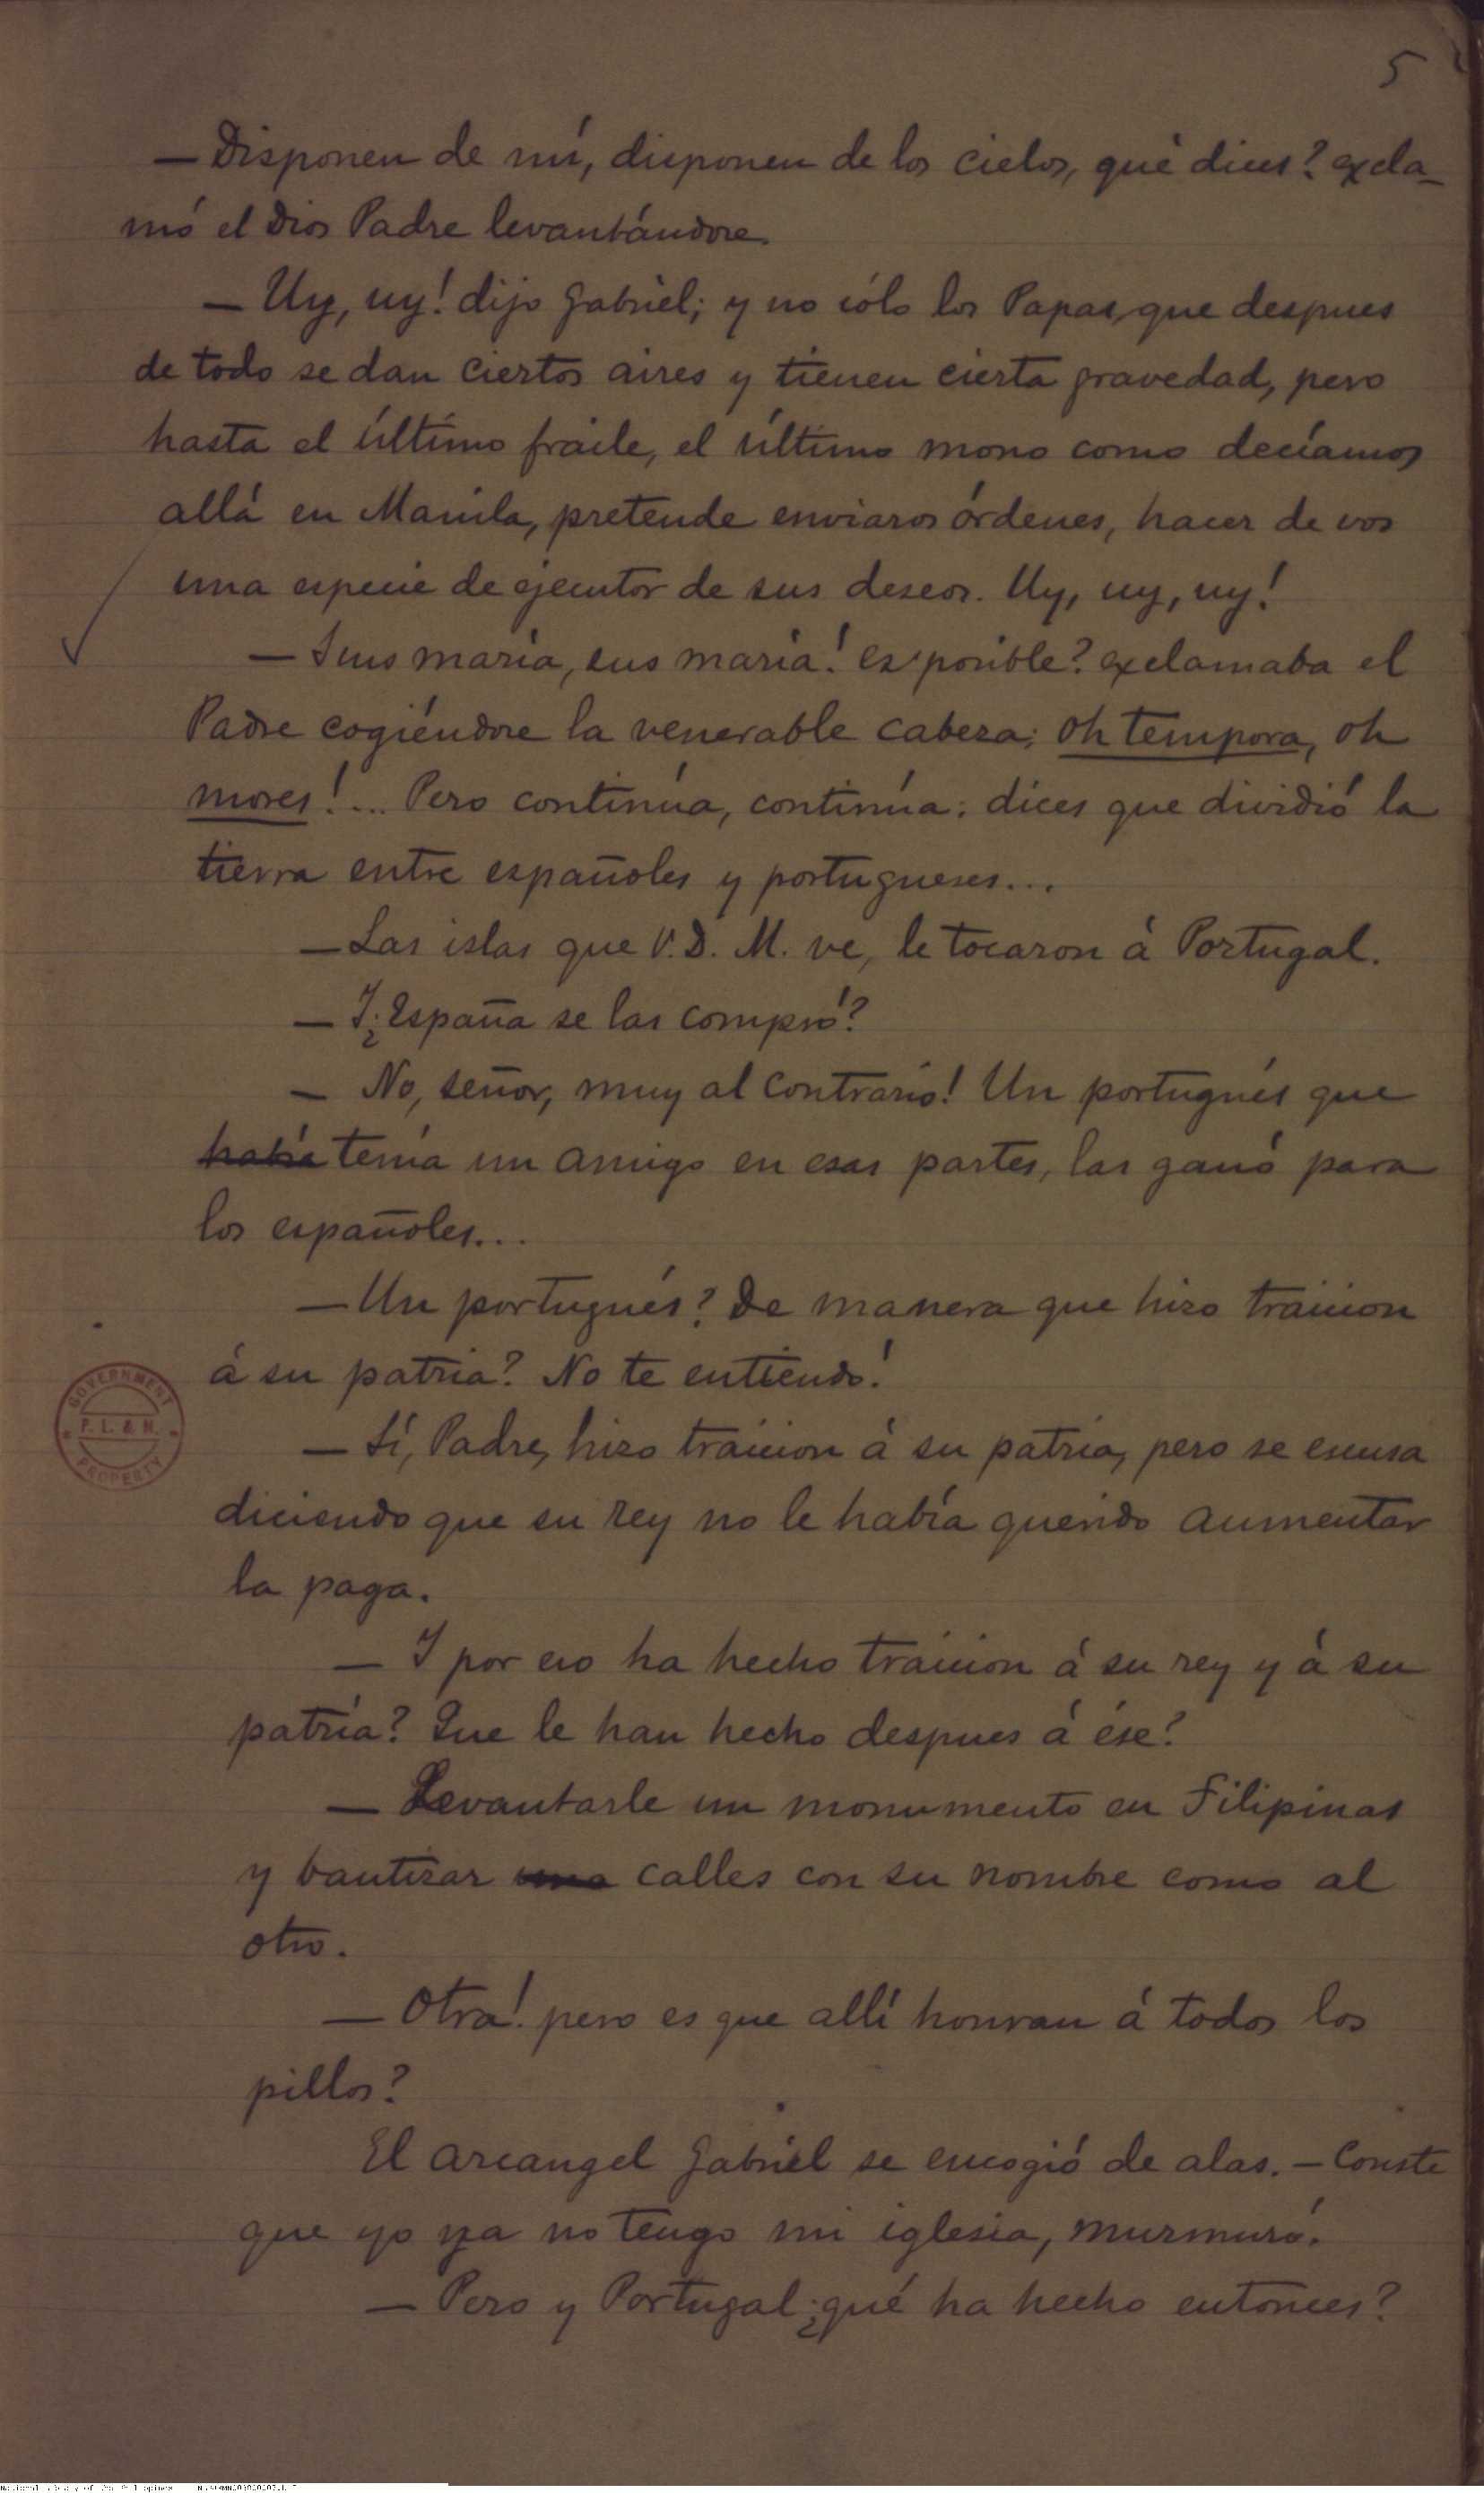 5
— Disponen de mí, disponen de los cielos, qué dices? excla-
mó el Dios Padre levantándose.
— Uy, uy! dijo Gabriel; y no sólo los Papas, que despues
de todo se dan ciertos aires y tienen cierta gravedad, pero
hasta el último fraile, el último mono como decíamos
allá en Manila, pretende enviaros órdenes, hacer de vos
una especie de ejecutor de sus deseos. Uy, uy, uy!
— Sus maría, sus maría! es posible? exclamaba el
Padre cogiéndose la venerable cabeza; oh tempora, oh
mores!... Pero continúa, continúa: dices que dividió la
tierra entre españoles y portugueses...
— Las islas que V. D. M. ve, le tocaron á Portugal.
— I ¿España se las compró?
— No, señor, muy al contrario! Un portugués que
había tenía un amigo en esas partes, las ganó para
los españoles...
— Un portugués? De manera que hizo traicion
á su patria? No te entiendo!
— Sí, Padre, hizo traicion á su patria, pero se escusa
diciendo que su rey no le había querido aumentar
la paga.
— I por eso ha hecho traicion á su rey y á su
patria? Que le han hecho despues á ése?
— Levantarle un monumento en Filipinas
y bautizar una calles con su nombre como al
otro.
— Otra! pero es que allí honran á todos los
pillos?
El arcangel Gabriel se encogió de alas. — Conste
que yo ya no tengo mi iglesia, murmuró.
— Pero y Portugal ¿qué ha hecho entonces?
GOVERNMENT
P. L. & M.
PROPERTY
National Library of the Philippines